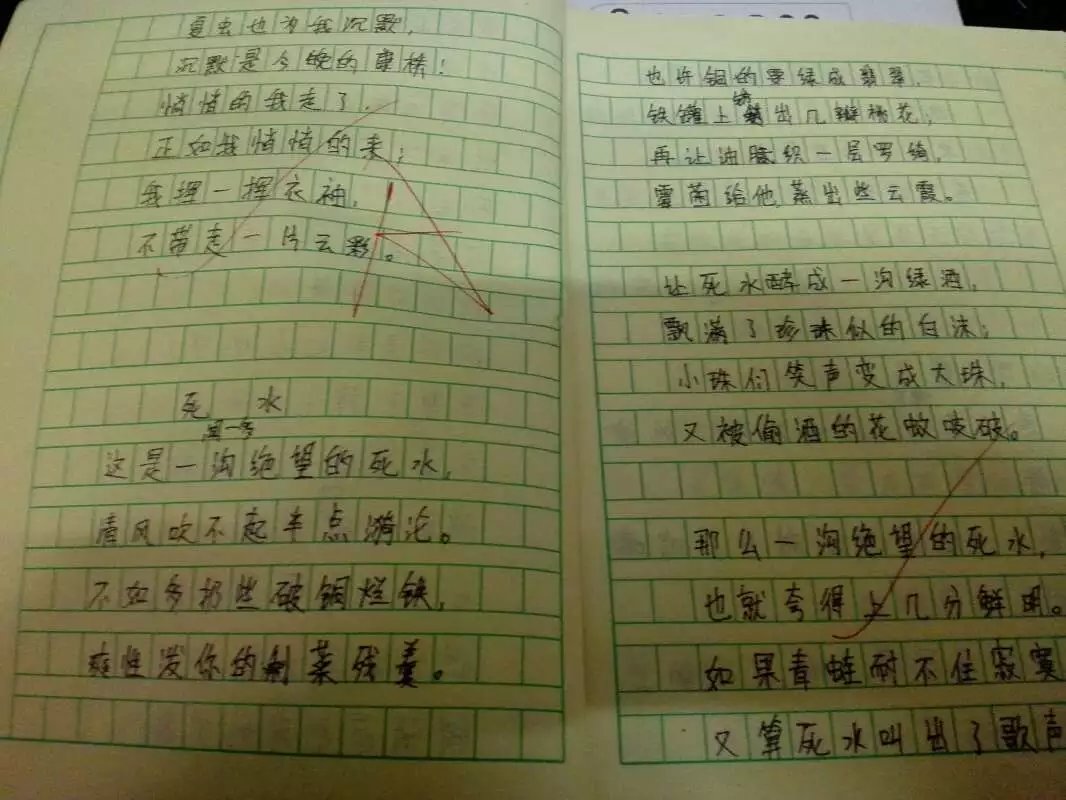 夏虫也为我沉默，
沉默是今晚的康桥！
悄悄的我走了，
正如我悄悄的来；
我挥一挥衣袖，
不带走一片云彩。
死 水
闻一多
这是一沟绝望的死水，
清风吹不起半点漪沦。
不如多扔些破铜烂铁，
爽性泼你的剩菜残羹。
也许铜的要绿成翡翠，
铁罐上锈出几瓣桃花；
再让油腻织一层罗绮，
霉菌给他蒸出些云霞。
让死水酵成一沟绿酒，
飘满了珍珠似的白沫；
小珠们笑声变成大珠，
又被偷酒的花蚊咬破。
那么一沟绝望的死水，
也就夸得上几分鲜明。
如果青蛙耐不住寂寞
又算死水叫出了歌声